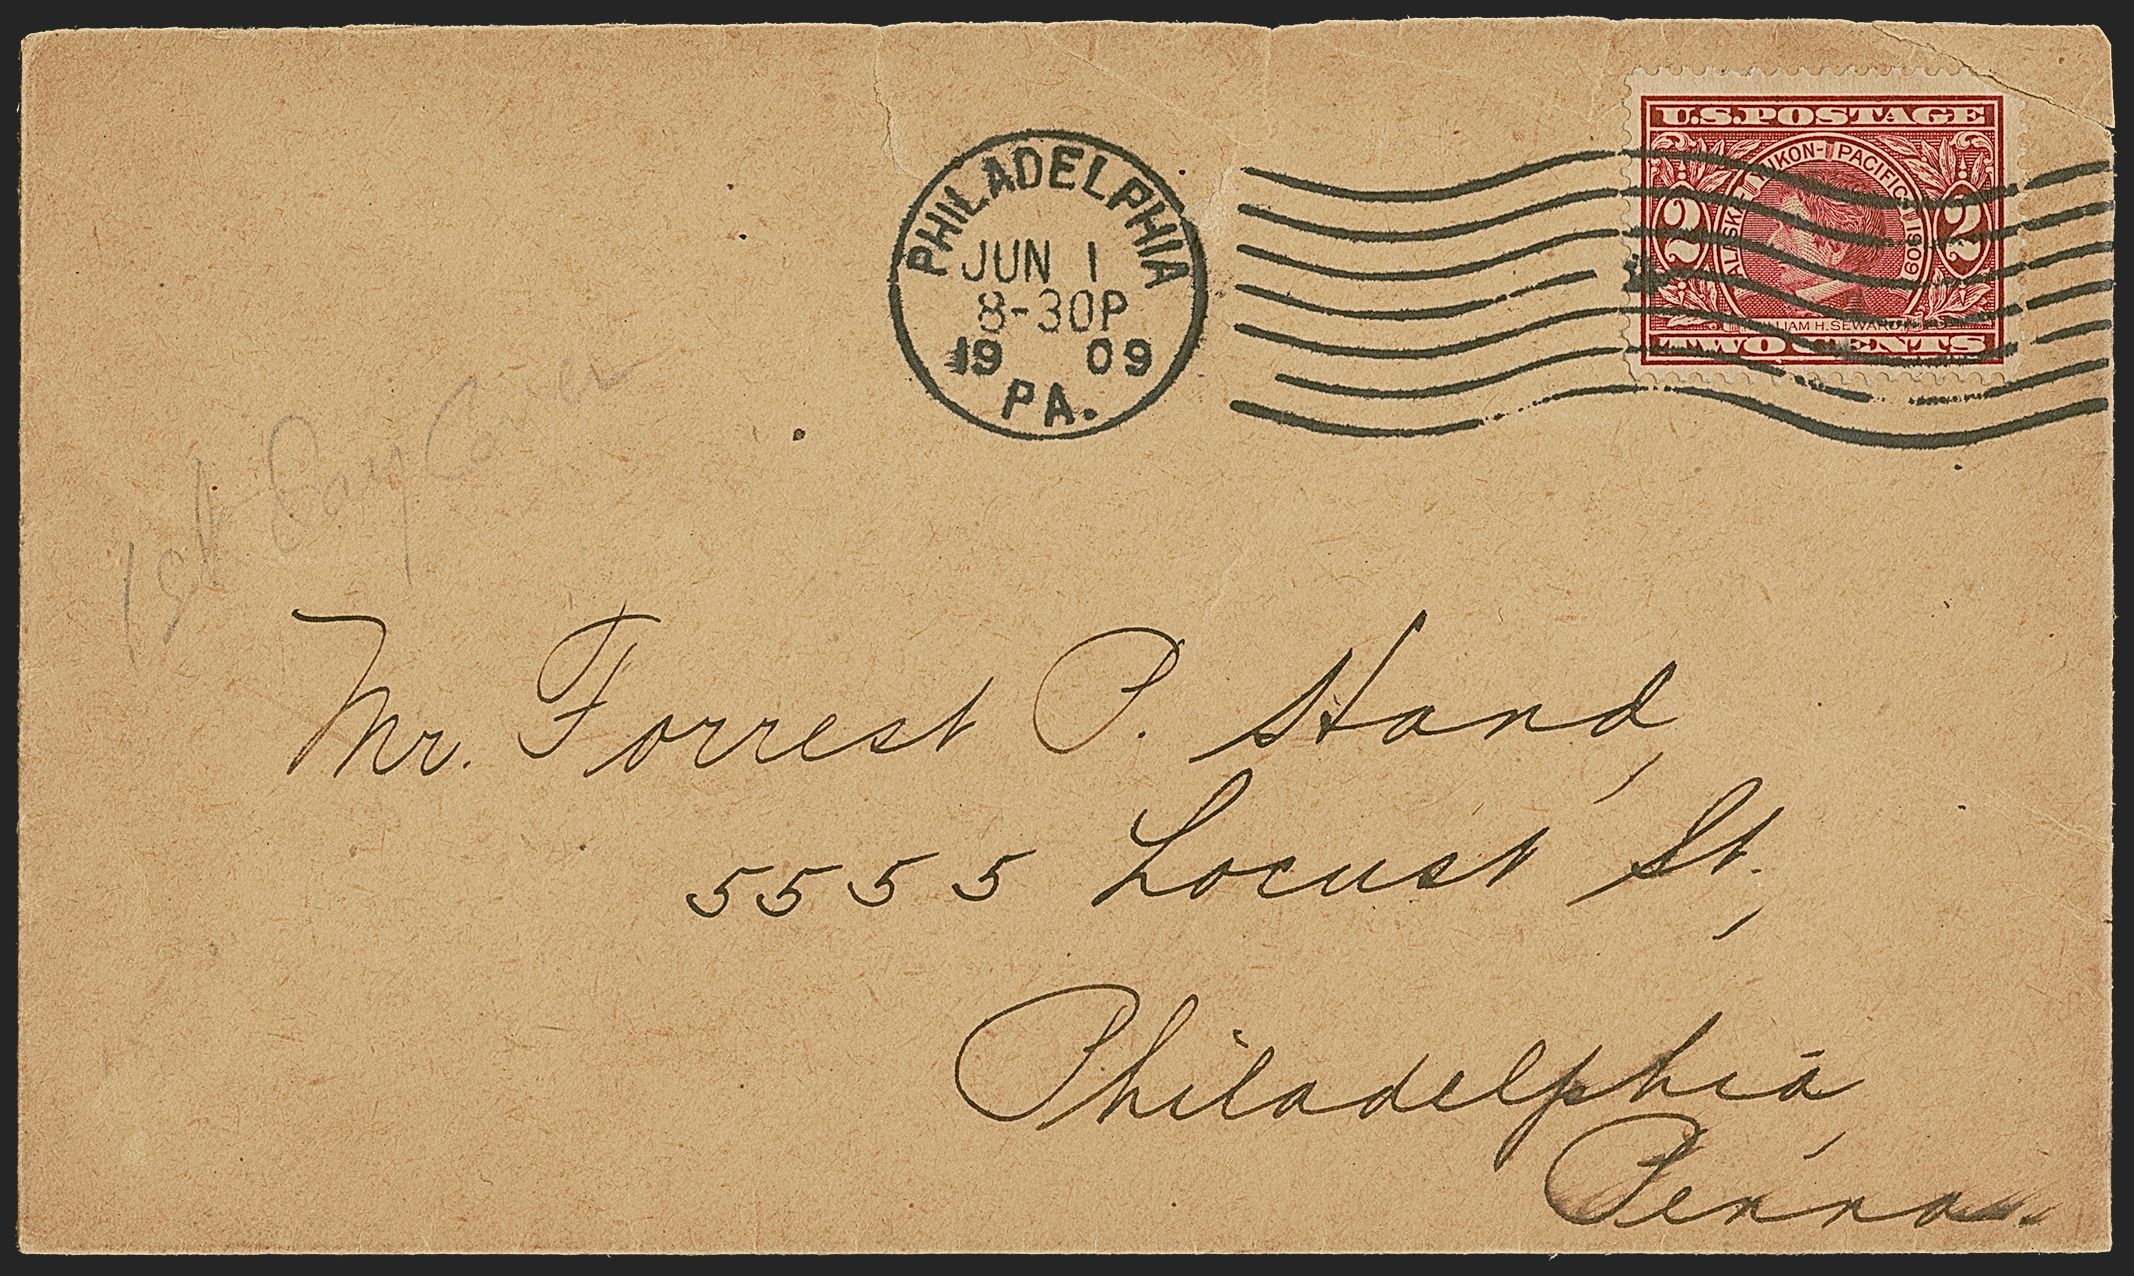 PHILADELPHIA
JUN 1
8-30P
19 09
PA.
U.S. POSTAGE
ALASKA-YUKON-PACIFIC 1909
2 2
WILLIAM H. SEWARD
TWO CENTS
1st Day Cover
Mr. Forrest P. Hand,
5555 Locust St.,
Philadelphia,
Penna.